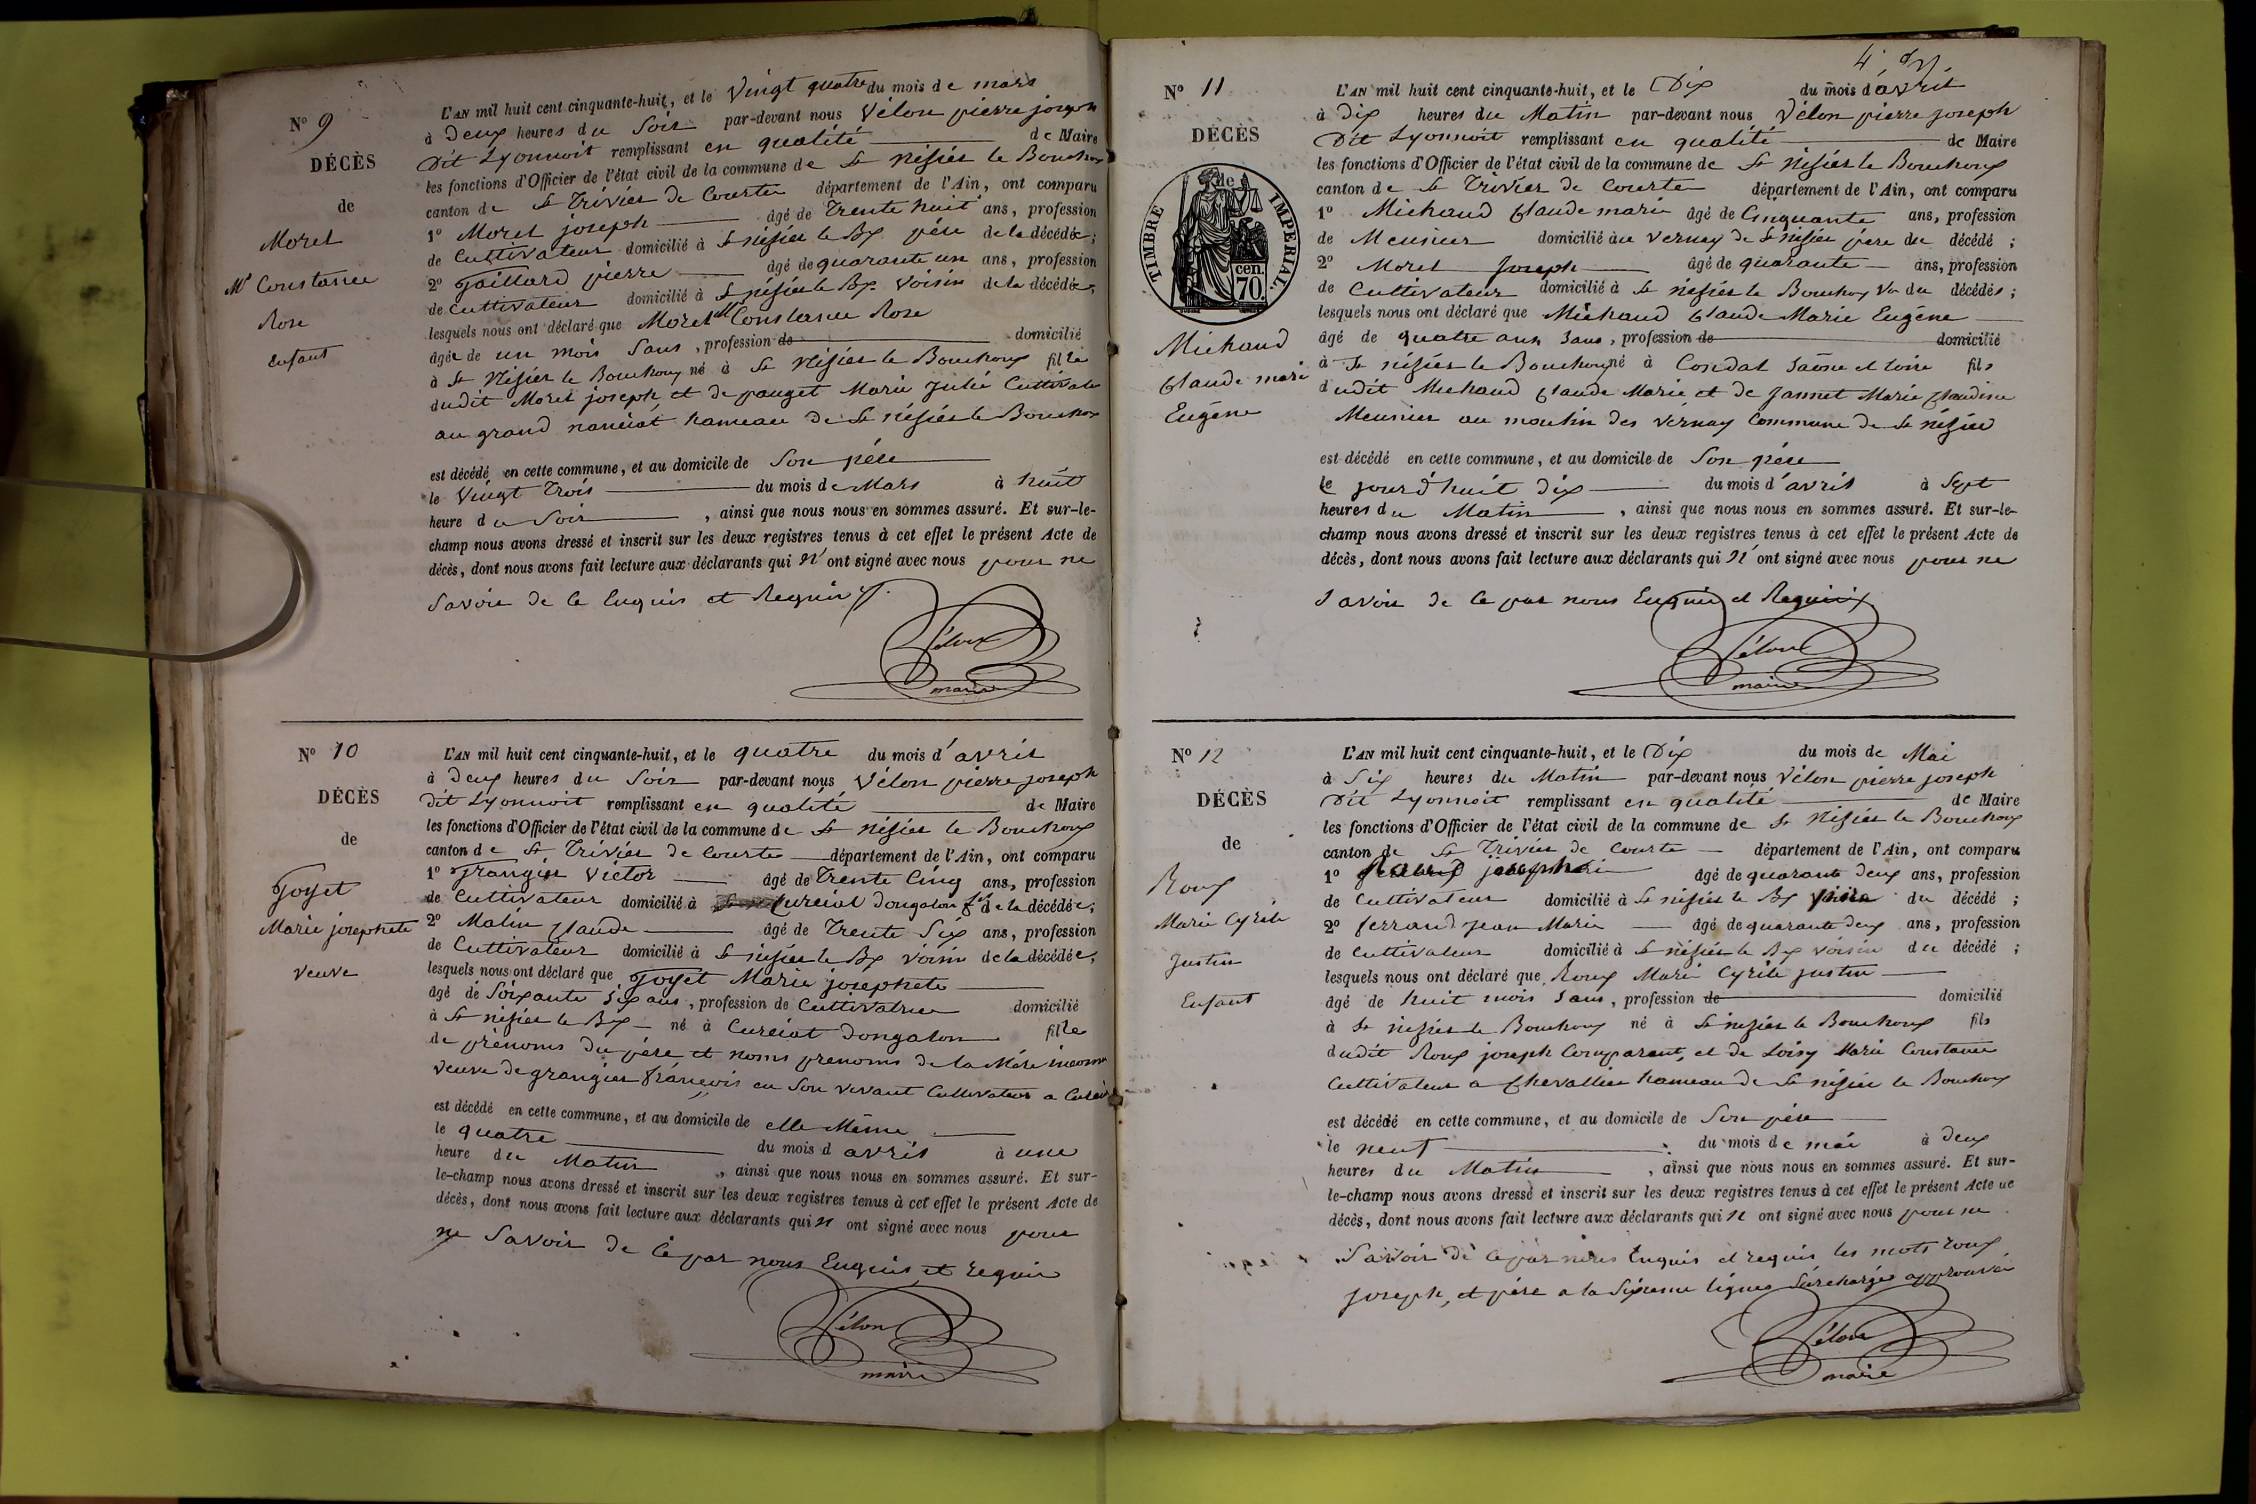 N° 9
DÉCÈS
de
Morel
Mie Constance
Rose
enfant
L'AN mil huit cent cinquante-huit, et le Vingt quatre du mois de mars
à Deux heures du Soir par-devant nous Vélon pierre joseph
Dit Lyonnoit remplissant en qualité de Maire
les fonctions d'Officier de l'état civil de la commune de St Nisier le Bouchoux
canton de St Trivier de Courte département de l'Ain, ont comparu
1° Morel joseph âgé de Trente huit ans, profession
de Cultivateur domicilié à St nisier le Bx père de la décédée;
2° Gaillard pierre âgé de quarante un ans, profession
de Cultivateur domicilié à St nisier le Bx Voisin de la décédée;
lesquels nous ont déclaré que Morel Mie Constance Rose
âgée de un mois Sans, profession de domicilié
à St Nisier le Bouchoux né à St Nisier le Bouchoux fille
dudit Morel joseph et de pauget Marie Julie Cultivate
au grand nanciat hameau de St nisier le Bouchoux
est décédé en cette commune, et au domicile de Son père
le Vingt Trois du mois de Mars à huit
heure du Soir, ainsi que nous nous en sommes assuré. Et sur-le-
champ nous avons dressé et inscrit sur les deux registres tenus à cet effet le présent Acte de
décès, dont nous avons fait lecture aux déclarants qui n'ont signé avec nous pour ne
Savoir de ce Enquis et Requis
Vélon
maire
N° 10
DÉCÈS
de
Goyet
Marie josephete
veuve
L'AN mil huit cent cinquante-huit, et le quatre du mois d'avril
à Deux heures du Soir par-devant nous Vélon pierre joseph
Dit Lyonnoit remplissant en qualité de Maire
les fonctions d'Officier de l'état civil de la commune de St Nisier le Bouchoux
canton de St Trivier de Courte département de l'Ain, ont comparu
1° Grangier Victor âgé de Trente Cinq ans, profession
de Cultivateur domicilié à Curciat Dongalon fils de la décédée;
2° Matin Claude âgé de Trente Six ans, profession
de Cultivateur domicilié à St nisier le Bx voisin de la décédée;
lesquels nous ont déclaré que Goyet Marie josephete
âgé de Soixante Six ans, profession de Cultivatrice domicilié
à St nisier le Bx né à Curciat Dongalon fille
de prénoms du père et noms prenoms de la Mère inconnu
veuve de grangier françois en Son vivant Cultivateur a Curciat
est décédé en cette commune, et au domicile de elle Même
le quatre du mois d avril à une
heure du Matin, ainsi que nous nous en sommes assuré. Et sur-
le-champ nous avons dressé et inscrit sur les deux registres tenus à cet effet le présent Acte de
décès, dont nous avons fait lecture aux déclarants qui n ont signé avec nous pour
ne Savoir de ce par nous Enquis et requis
Vélon
maire
4e
N° 11
DÉCÈS
de
TIMBRE IMPERIAL
70 cen.
Michaud
Claude marie
Eugéne
L'AN mil huit cent cinquante-huit, et le Dix du mois d'avril
à Dix heures du Matin par-devant nous Vélon pierre joseph
Dit Lyonnoit remplissant en qualité de Maire
les fonctions d'Officier de l'état civil de la commune de St Nisier le Bouchoux
canton de St Trivier de Courte département de l'Ain, ont comparu
1° Michaud Claude marie âgé de Cinquante ans, profession
de Meunier domicilié au vernay de St nisier père du décédé;
2° Morel Joseph âgé de quarante ans, profession
de Cultivateur domicilié à St nisier le Bouchoux Vn du décédés;
lesquels nous ont déclaré que Michaud Claude Marie Eugene
âgé de quatre ans Sans, profession de domicilié
à St nisier le Bouchoux né à Condal Saône et loire fils
dudit Michaud Claude Marie et de Jannet Marie Claudine
Meunier au moulin des vernay Commune de St nisier
est décédé en cette commune, et au domicile de Son père
le jourd'huit dix du mois d'avril à Sept
heures du Matin, ainsi que nous nous en sommes assuré. Et sur-le-
champ nous avons dressé et inscrit sur les deux registres tenus à cet effet le présent Acte de
décès, dont nous avons fait lecture aux déclarants qui n'ont signé avec nous pour ne
Savoir de ce par nous Enquis et Requis
Vélon
maire
N° 12
DÉCÈS
de
Roux
Marie Cyrile
Justin
Enfant
L'AN mil huit cent cinquante-huit, et le Dix du mois de Mai
à Six heures du Matin par-devant nous Vélon pierre joseph
Dit Lyonnoit remplissant en qualité de Maire
les fonctions d'Officier de l'état civil de la commune de St Nisier le Bouchoux
canton de St Trivier de Courte département de l'Ain, ont comparu
1° Roux joseph âgé de quarante deux ans, profession
de Cultivateur domicilié à St nisier le Bx père du décédé;
2° ferrand jean Marie âgé de quarante deux ans, profession
de Cultivateur domicilié à St nisier le Bx voisin du décédé;
lesquels nous ont déclaré que Roux Marie Cyrile justin
âgé de huit mois Sans, profession de domicilié
à St nisier le Bouchoux né à St nisier le Bouchoux fils
dudit Roux joseph Comparant, et de Loisy Marie Constance
Cultivateur a Chevallier hameau de St nisier le Bouchoux
est décédé en cette commune, et au domicile de Son père
le neuf du mois de mai à deux
heures du Matin, ainsi que nous nous en sommes assuré. Et sur-
le-champ nous avons dressé et inscrit sur les deux registres tenus à cet effet le présent Acte de
décès, dont nous avons fait lecture aux déclarants qui n ont signé avec nous pour ne
Savoir de ce par nous Enquis et requis les mots roux
joseph, et père a la Sixieme lignes Surchargés approuvés
Vélon
maire